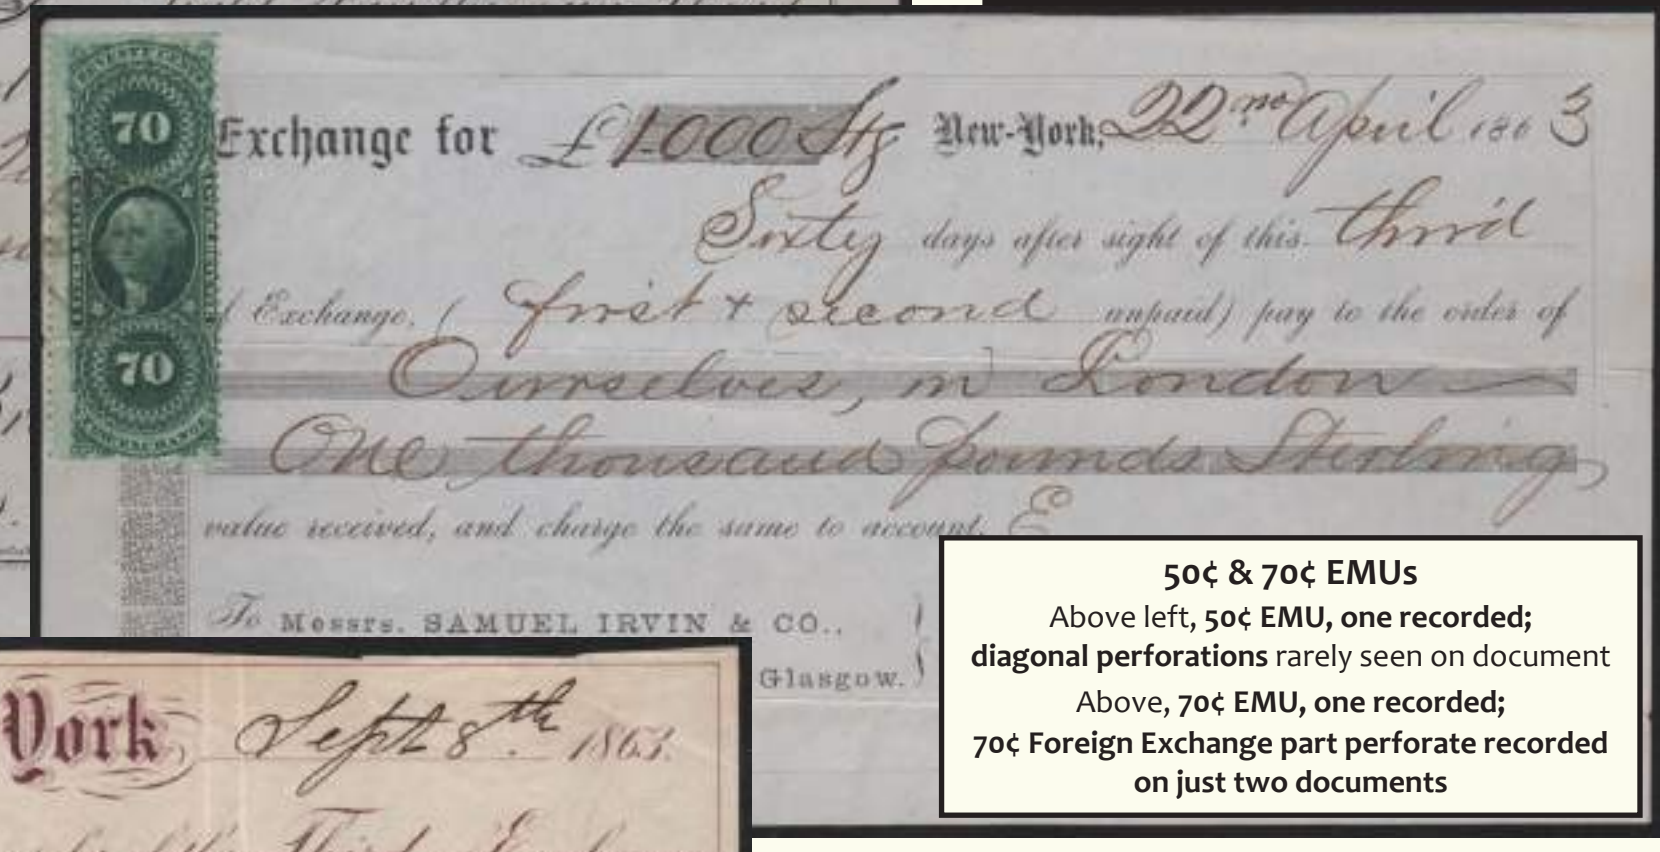 70
70
Exchange for £1000 Stg New-York, 22nd April 1863
Sixty days after sight of this third
Exchange, ( first + second unpaid) pay to the order of
Ourselves, in London
One thousand pounds Sterling
value received, and charge the same to account. E
To Messrs. SAMUEL IRVIN & CO.,
Glasgow.
York Sept 8th 1863.
50¢ & 70¢ EMUs
Above left, 50¢ EMU, one recorded;
diagonal perforations rarely seen on document
Above, 70¢ EMU, one recorded;
70¢ Foreign Exchange part perforate recorded
on just two documents